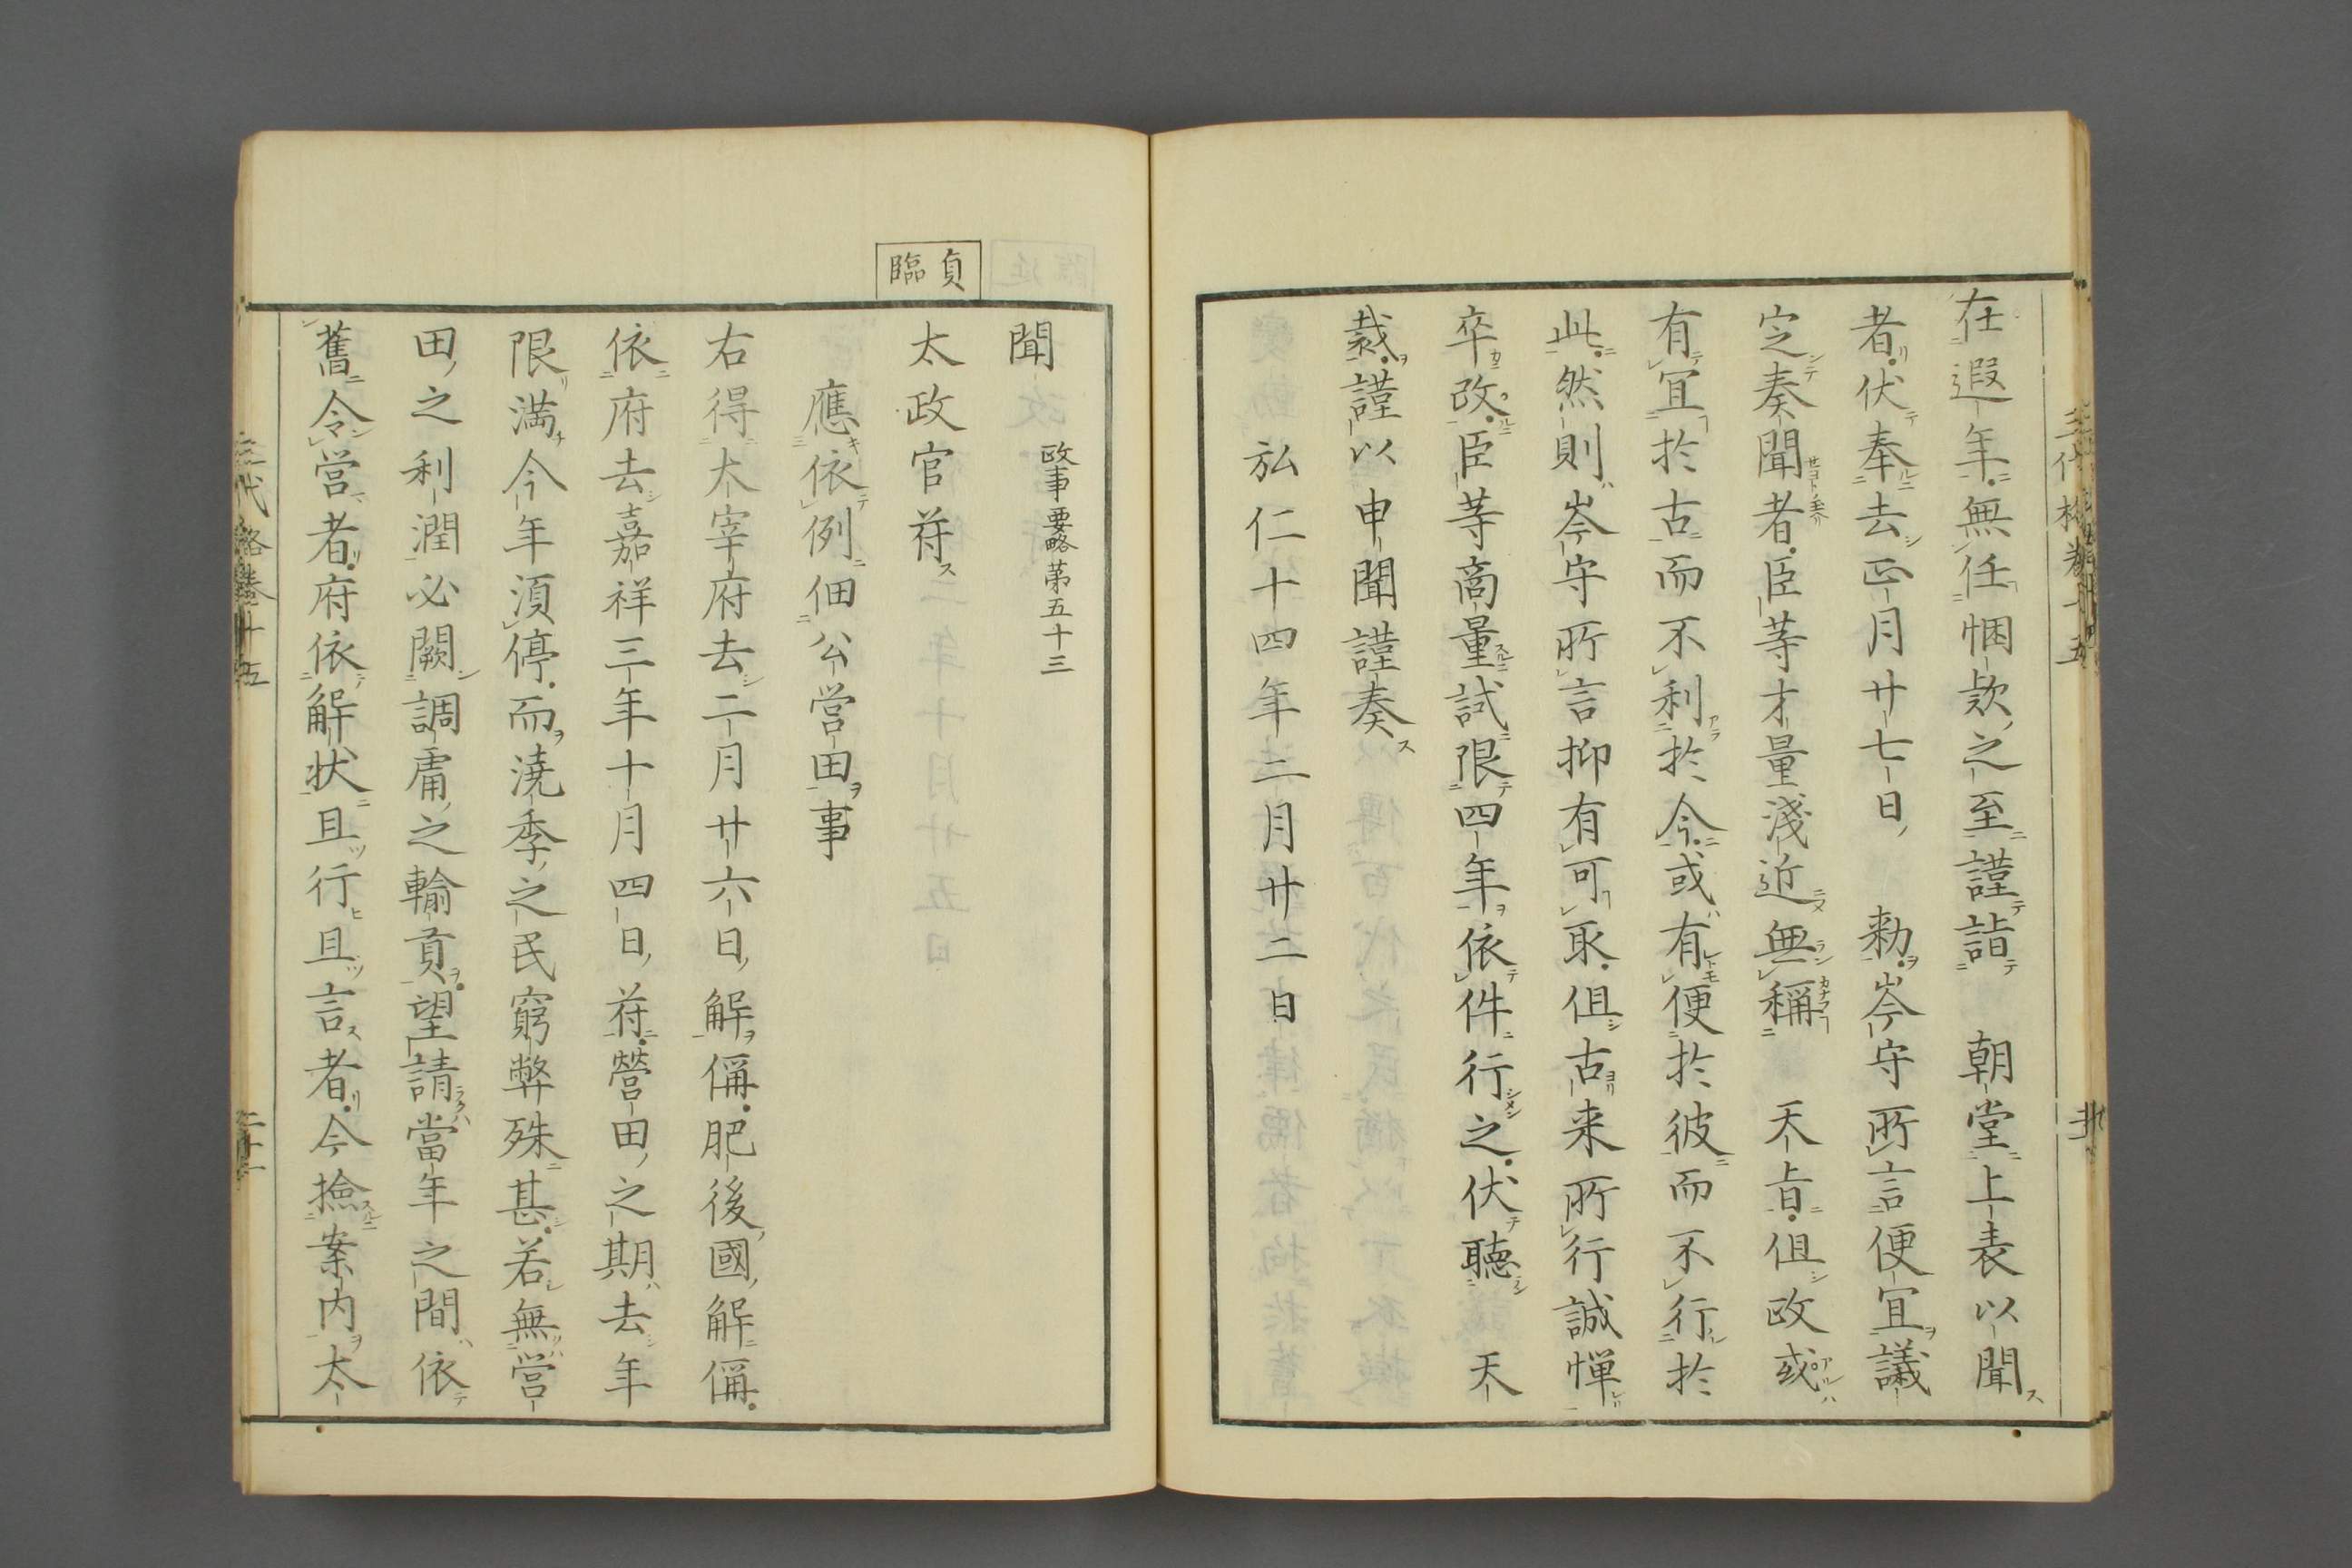 在遐年無任悃款之至謹詣　朝堂上表以聞
者伏奉去正月廿七日　勅岑守所言便宜議
定奏聞者臣等才量淺近無稱　天旨但政或
有宜於古而不利於今或有便於彼而不行於
此然則岑守所言抑有可取但古来所行誠憚
卒改臣等商量試限四年依件行之伏聴　天
裁謹以申聞謹奏
弘仁十四年二月廿二日
聞
政事要略第五十三
貞臨
太政官苻
應依例佃公営田事
右得太宰府去二月廿六日解偁肥後國解偁
依府去嘉祥三年十月四日苻營田之期去年
限満今年湏停而澆季之民窮弊殊甚若無営
田之利潤必闕調庸之輸貢望請當年之間依
舊令営者府依解状且行且言者今撿案内太